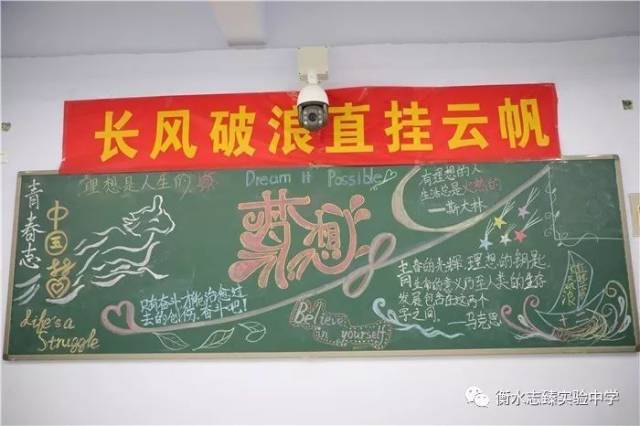 长风破浪直挂云帆
理想是人生的
Dream It Possible
有理想的人
生活总是火热的
——斯大林
青春志
中国梦
梦想
青春的光辉,理想的钥匙,
生命的意义乃至人类的生存
发展包含在这两个
字之间。
——马克思
只有奋斗才能治愈过
去的创伤,奋斗吧!
Life's a
Struggle
Believe
in yourself
衡水志臻实验中学